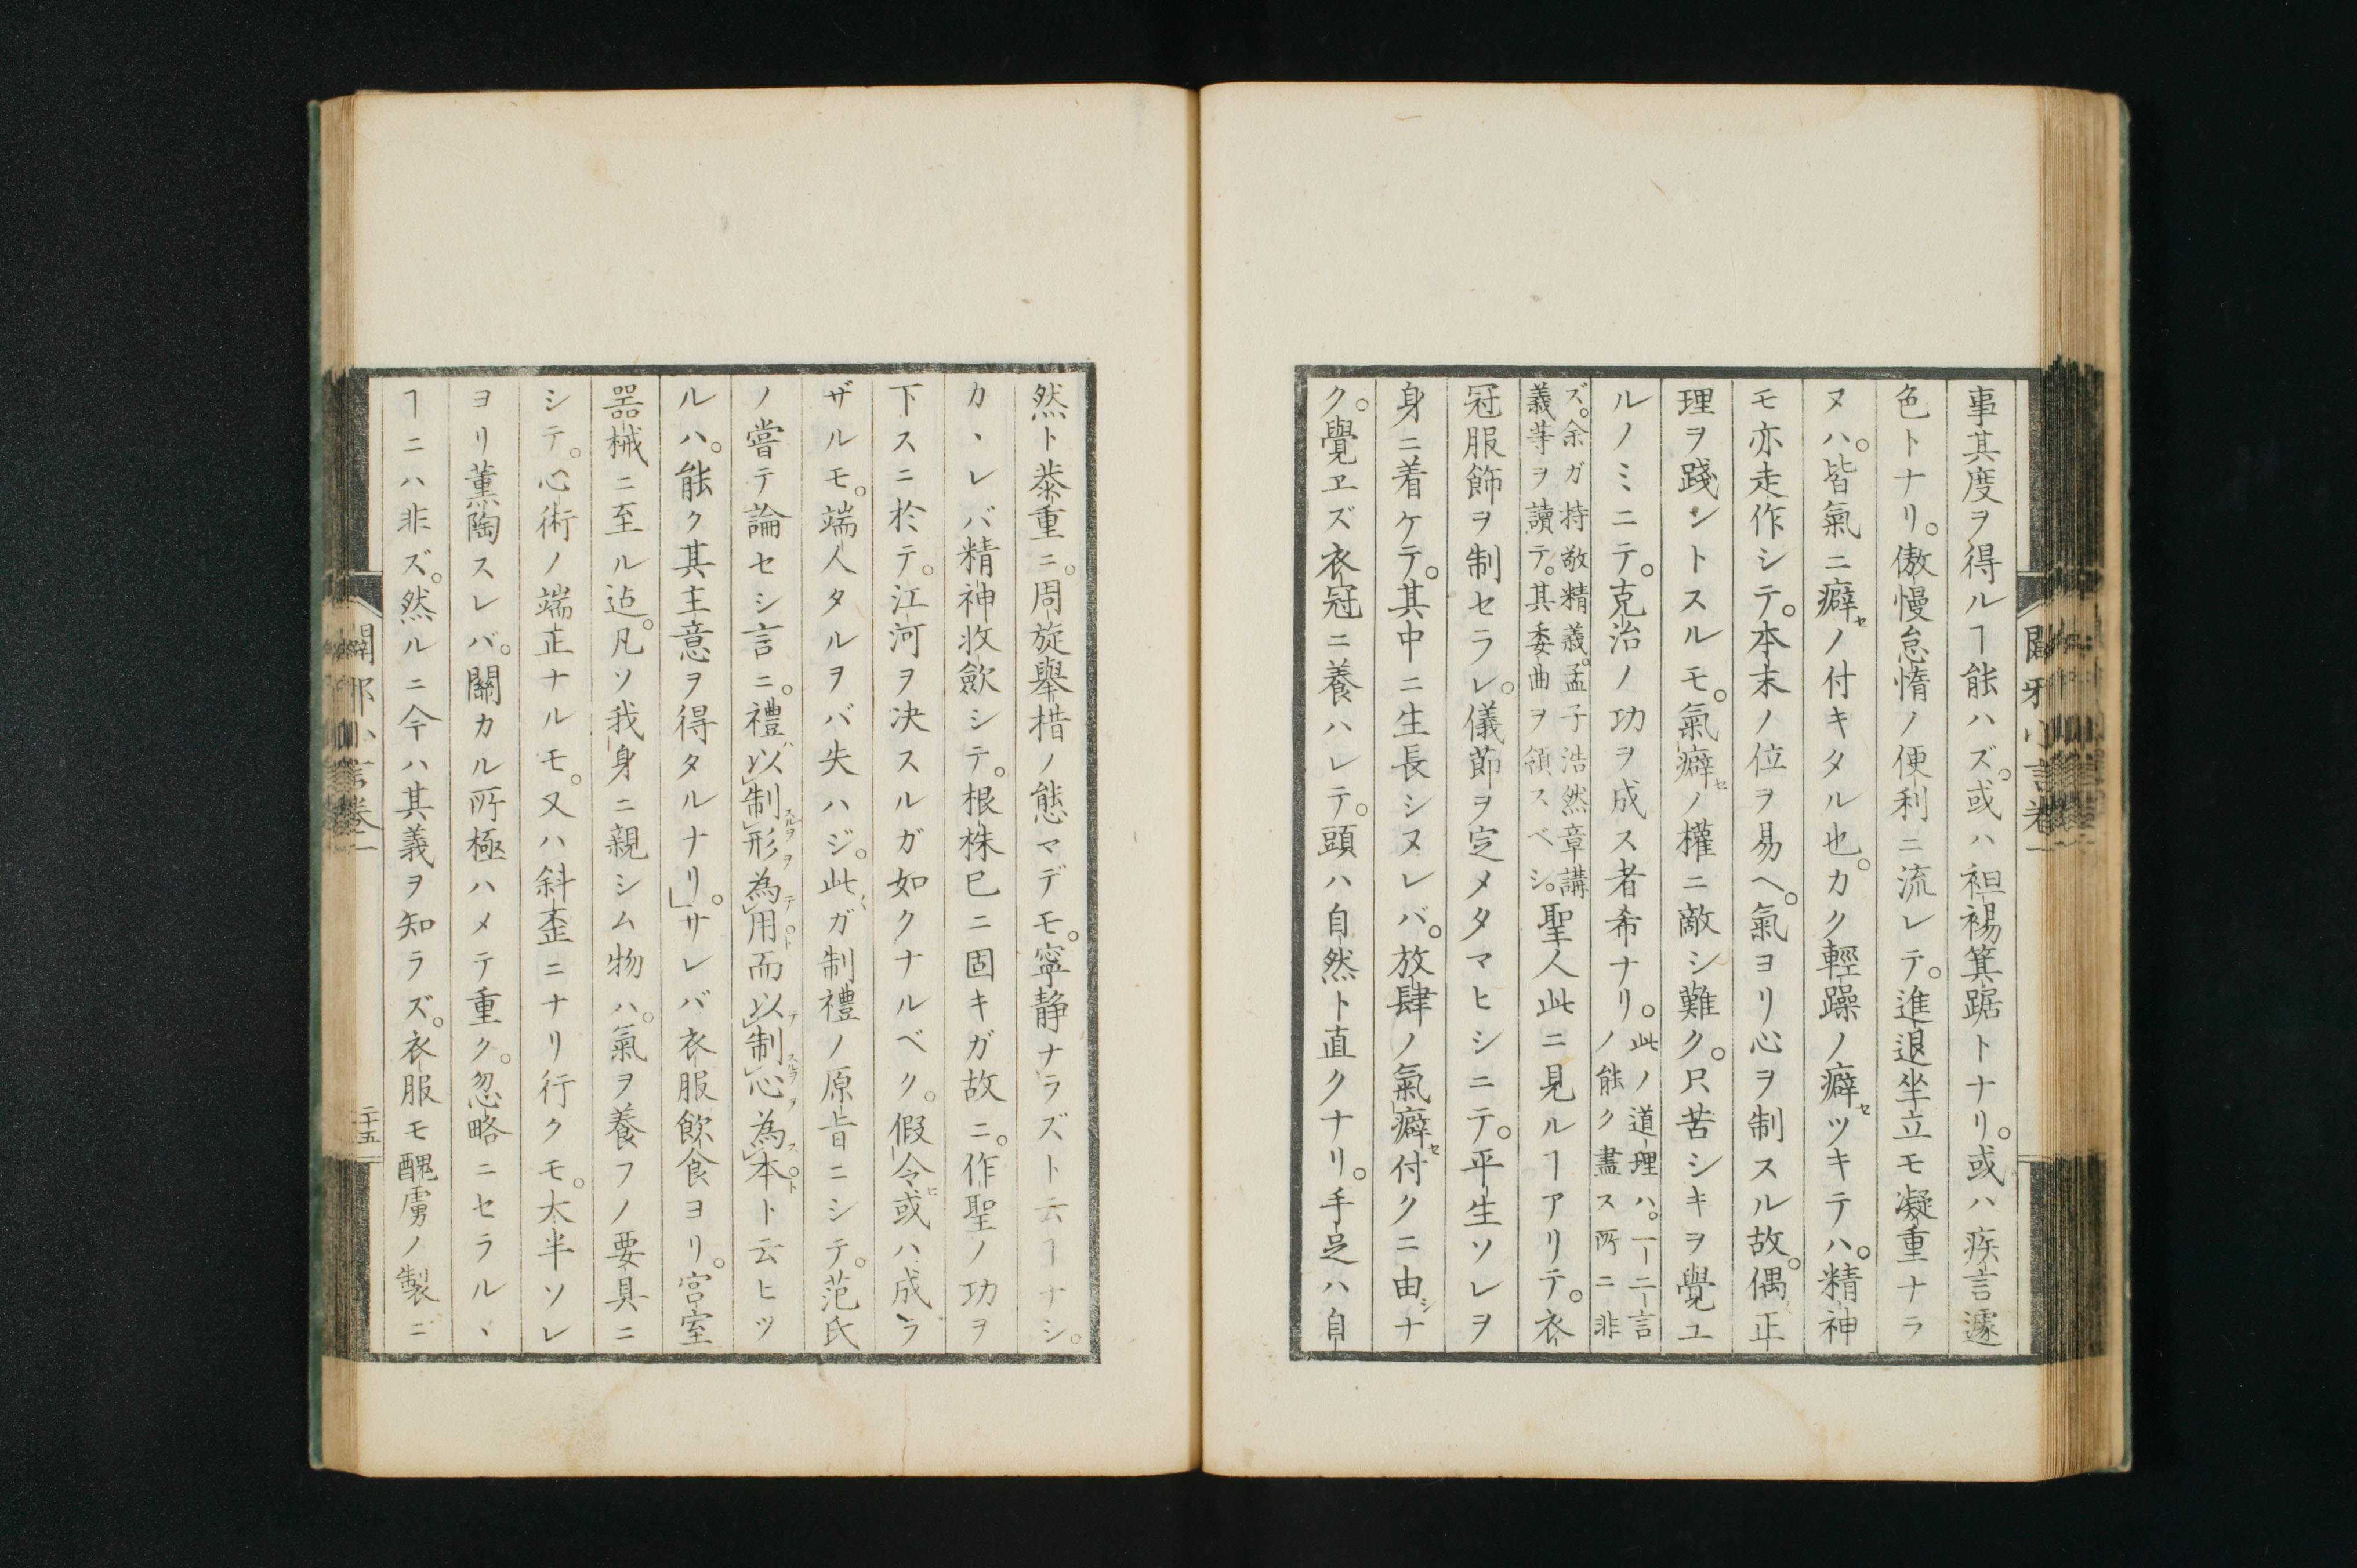 事其度ヲ得ルヿ能ハズ。或ハ袒裼箕踞トナリ。或ハ疾言遽
色トナリ。傲慢怠惰ノ便利ニ流レテ。進退坐立モ凝重ナラ
ヌハ。皆氣ニ癖セノ付キタル也。カク輕躁ノ癖セツキテハ。精神
モ亦走作シテ。本末ノ位ヲ易ヘ。氣ヨリ心ヲ制スル故。偶正
理ヲ踐ントスルモ。氣癖セノ權ニ敵シ難ク。只苦シキヲ覺ユ
ルノミニテ。克治ノ功ヲ成ス者希ナリ。此ノ道理ハ。一一二言
ノ能ク盡ス所ニ非
ズ。余ガ持敬精義。孟子浩然章講
義等ヲ讀テ。其委曲ヲ領スベシ。聖人此ニ見ルヿアリテ。衣
冠服飾ヲ制セラレ。儀節ヲ定メタマヒシニテ。平生ソレヲ
身ニ着ケテ。其中ニ生長シヌレバ。放肆ノ氣癖セ付クニ由シナ
ク。覺ヱズ衣冠ニ養ハレテ。頭ハ自然ト直クナリ。手足ハ自
然ト恭重ニ。周旋舉措ノ態マデモ。寧静ナラズト云ヿナシ。
カヽレバ精神收歛シテ。根株已ニ固キガ故ニ。作聖ノ功ヲ
下スニ於テ。江河ヲ决スルガ如クナルベク。假令ヒ或ハ成ラ
ザルモ。端人タルヲバ失ハジ。此ガ制禮ノ原旨ニシテ。范氏
ノ嘗テ論セシ言ニ。禮ハ以制スルヲ形ヲ為テ用ト而以テ制スルヲ心ヲ為ス本トト云ヒツ
ルハ。能ク其主意ヲ得タルナリ。」サレバ衣服飲食ヨリ。宮室
器械ニ至ル迠。凡ソ我身ニ親シム物ハ。氣ヲ養フノ要具ニ
シテ。心術ノ端正ナルモ。又ハ斜歪ニナリ行クモ。大半ソレ
ヨリ薫陶スレバ。關カル所極ハメテ重ク。忽略ニセラルヽ
ヿニハ非ズ。然ルニ今ハ其義ヲ知ラズ。衣服モ醜虜ノ製ニ
二十五